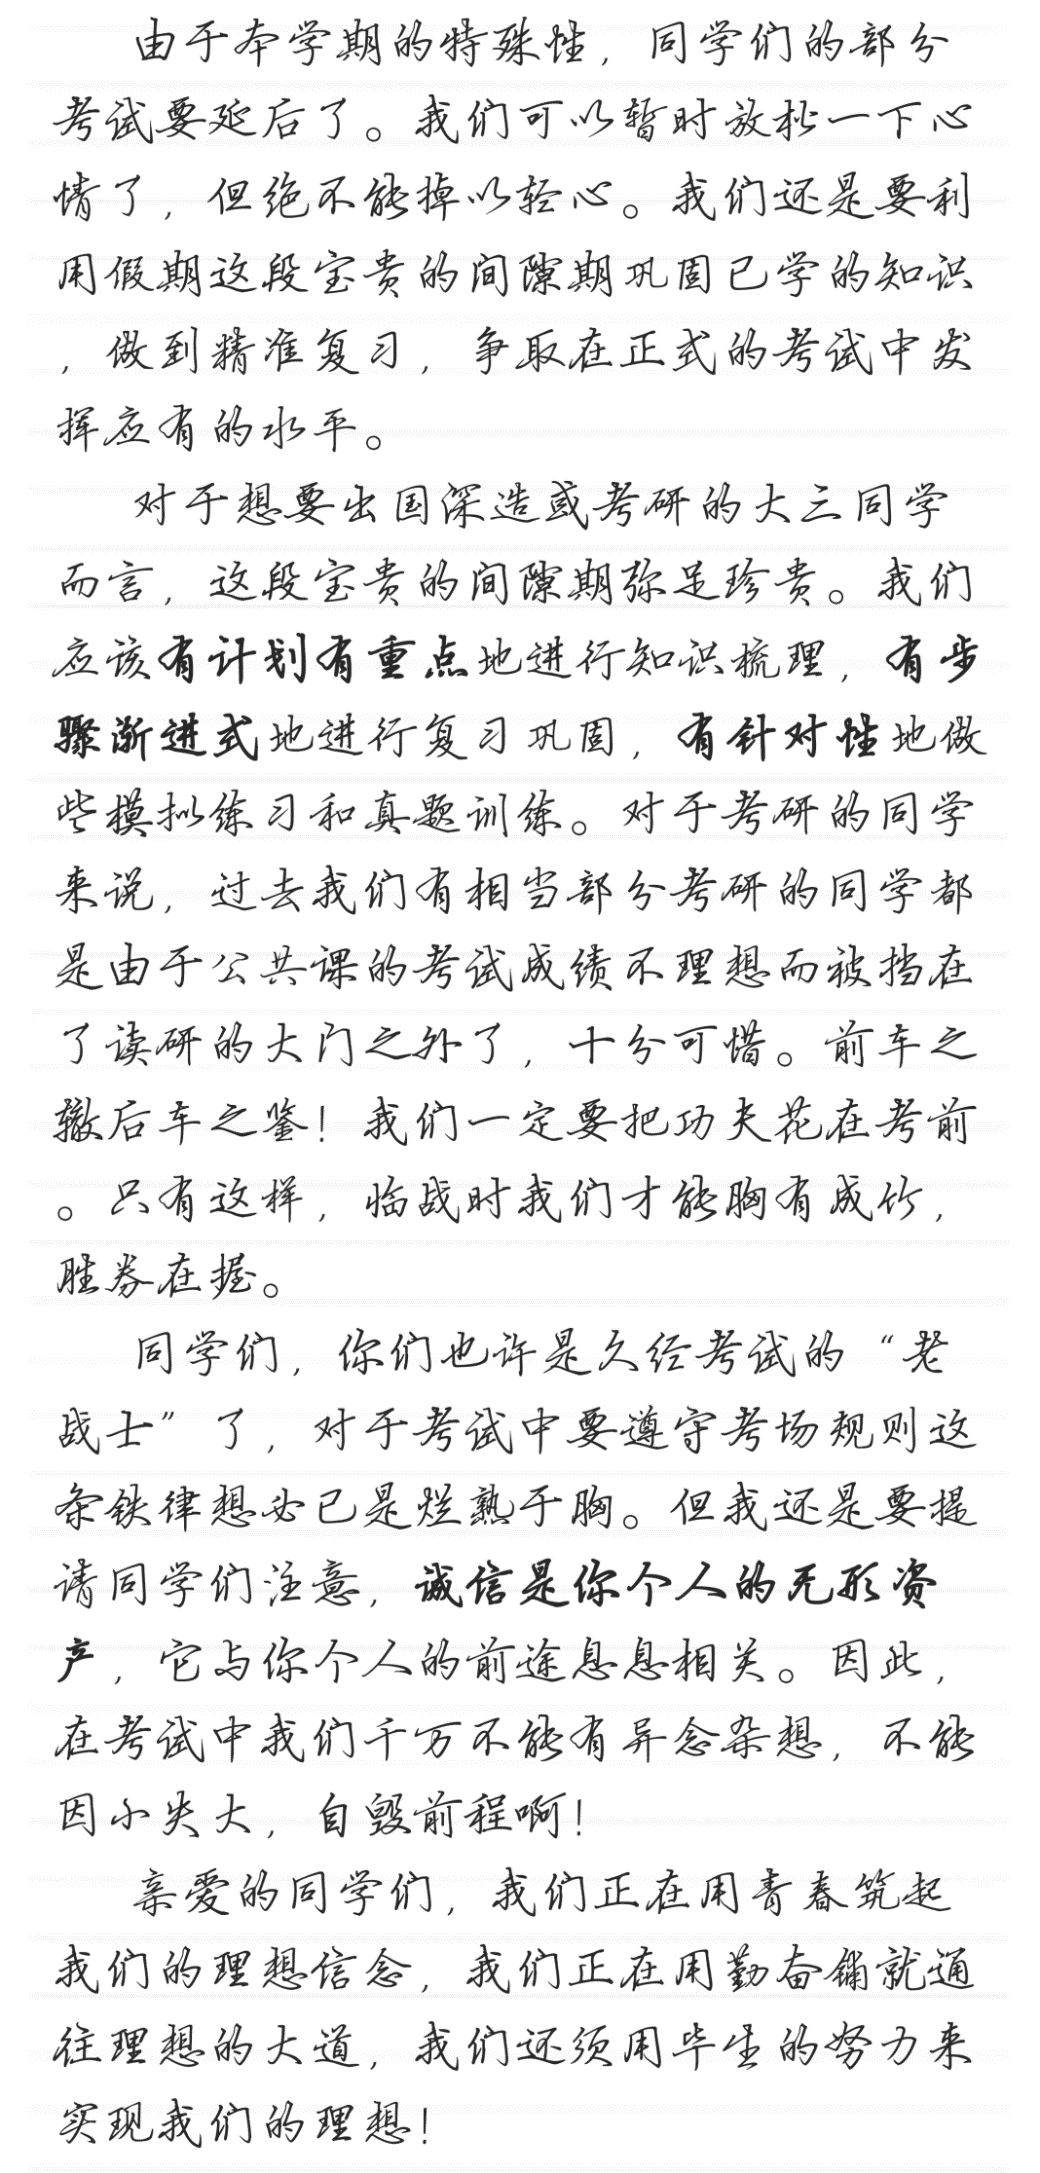 由于本学期的特殊性，同学们的部分
考试要延后了。我们可以暂时放松一下心
情了，但绝不能掉以轻心。我们还是要利
用假期这段宝贵的间隙期巩固已学的知识
，做到精准复习，争取在正式的考试中发
挥应有的水平。
对于想要出国深造或考研的大三同学
而言，这段宝贵的间隙期弥足珍贵。我们
应该有计划有重点地进行知识梳理，有步
骤渐进式地进行复习巩固，有针对性地做
些模拟练习和真题训练。对于考研的同学
来说，过去我们有相当部分考研的同学都
是由于公共课的考试成绩不理想而被挡在
了读研的大门之外了，十分可惜。前车之
辙后车之鉴！我们一定要把功夫花在考前
。只有这样，临战时我们才能胸有成竹，
胜券在握。
同学们，你们也许是久经考试的“老
战士”了，对于考试中要遵守考场规则这
条铁律想必已是烂熟于胸。但我还是要提
请同学们注意，诚信是你个人的无形资
产，它与你个人的前途息息相关。因此，
在考试中我们千万不能有异念杂想，不能
因小失大，自毁前程啊！
亲爱的同学们，我们正在用青春筑起
我们的理想信念，我们正在用勤奋铺就通
往理想的大道，我们还须用毕生的努力来
实现我们的理想！